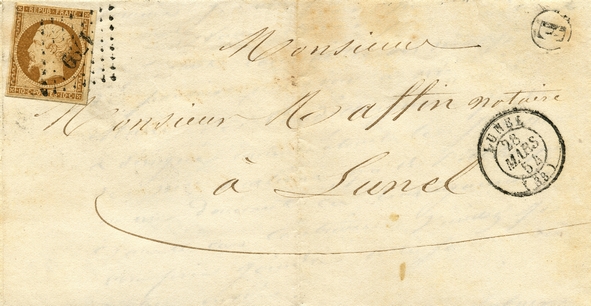 REPUB. FRANC.
10 c. 10 c.
E
Monsieur
Monsieur Raffin notaire
à Lunel
LUNEL
28
MARS
54
(33)